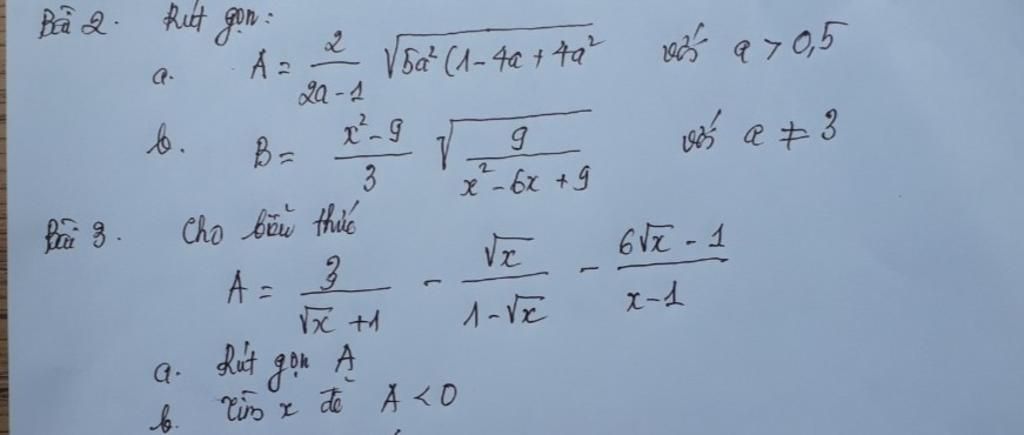 Bài 2. Rút gọn:
a. A = \frac{2}{2a-1} \sqrt{5a^2(1-4a+4a^2} với a > 0,5
b. B = \frac{x^2-9}{3} \sqrt{\frac{9}{x^2-6x+9}} với a ≠ 3
Bài 3. Cho biểu thức
A = \frac{3}{\sqrt{x}+1} - \frac{\sqrt{x}}{1-\sqrt{x}} - \frac{6\sqrt{x}-1}{x-1}
a. Rút gọn A
b. Tìm x để A < 0